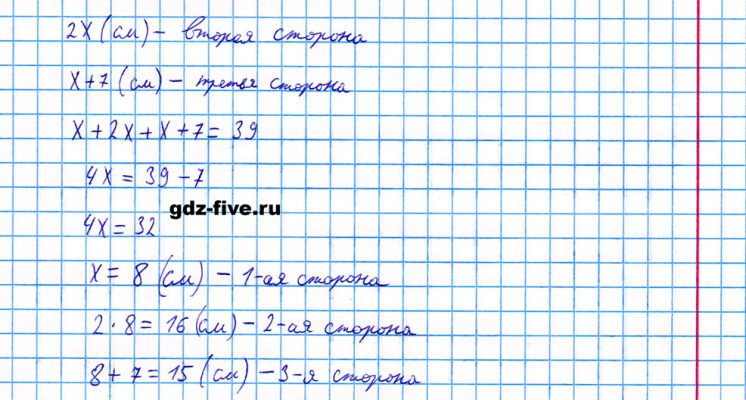 2х (см) – вторая сторона
х+7 (см) – третья сторона
х+2х+х+7=39
4х = 39-7
gdz-five.ru
4х = 32
х = 8 (см) – 1-ая сторона
2·8=16 (см) – 2-ая сторона
8+7=15 (см) – 3-я сторона